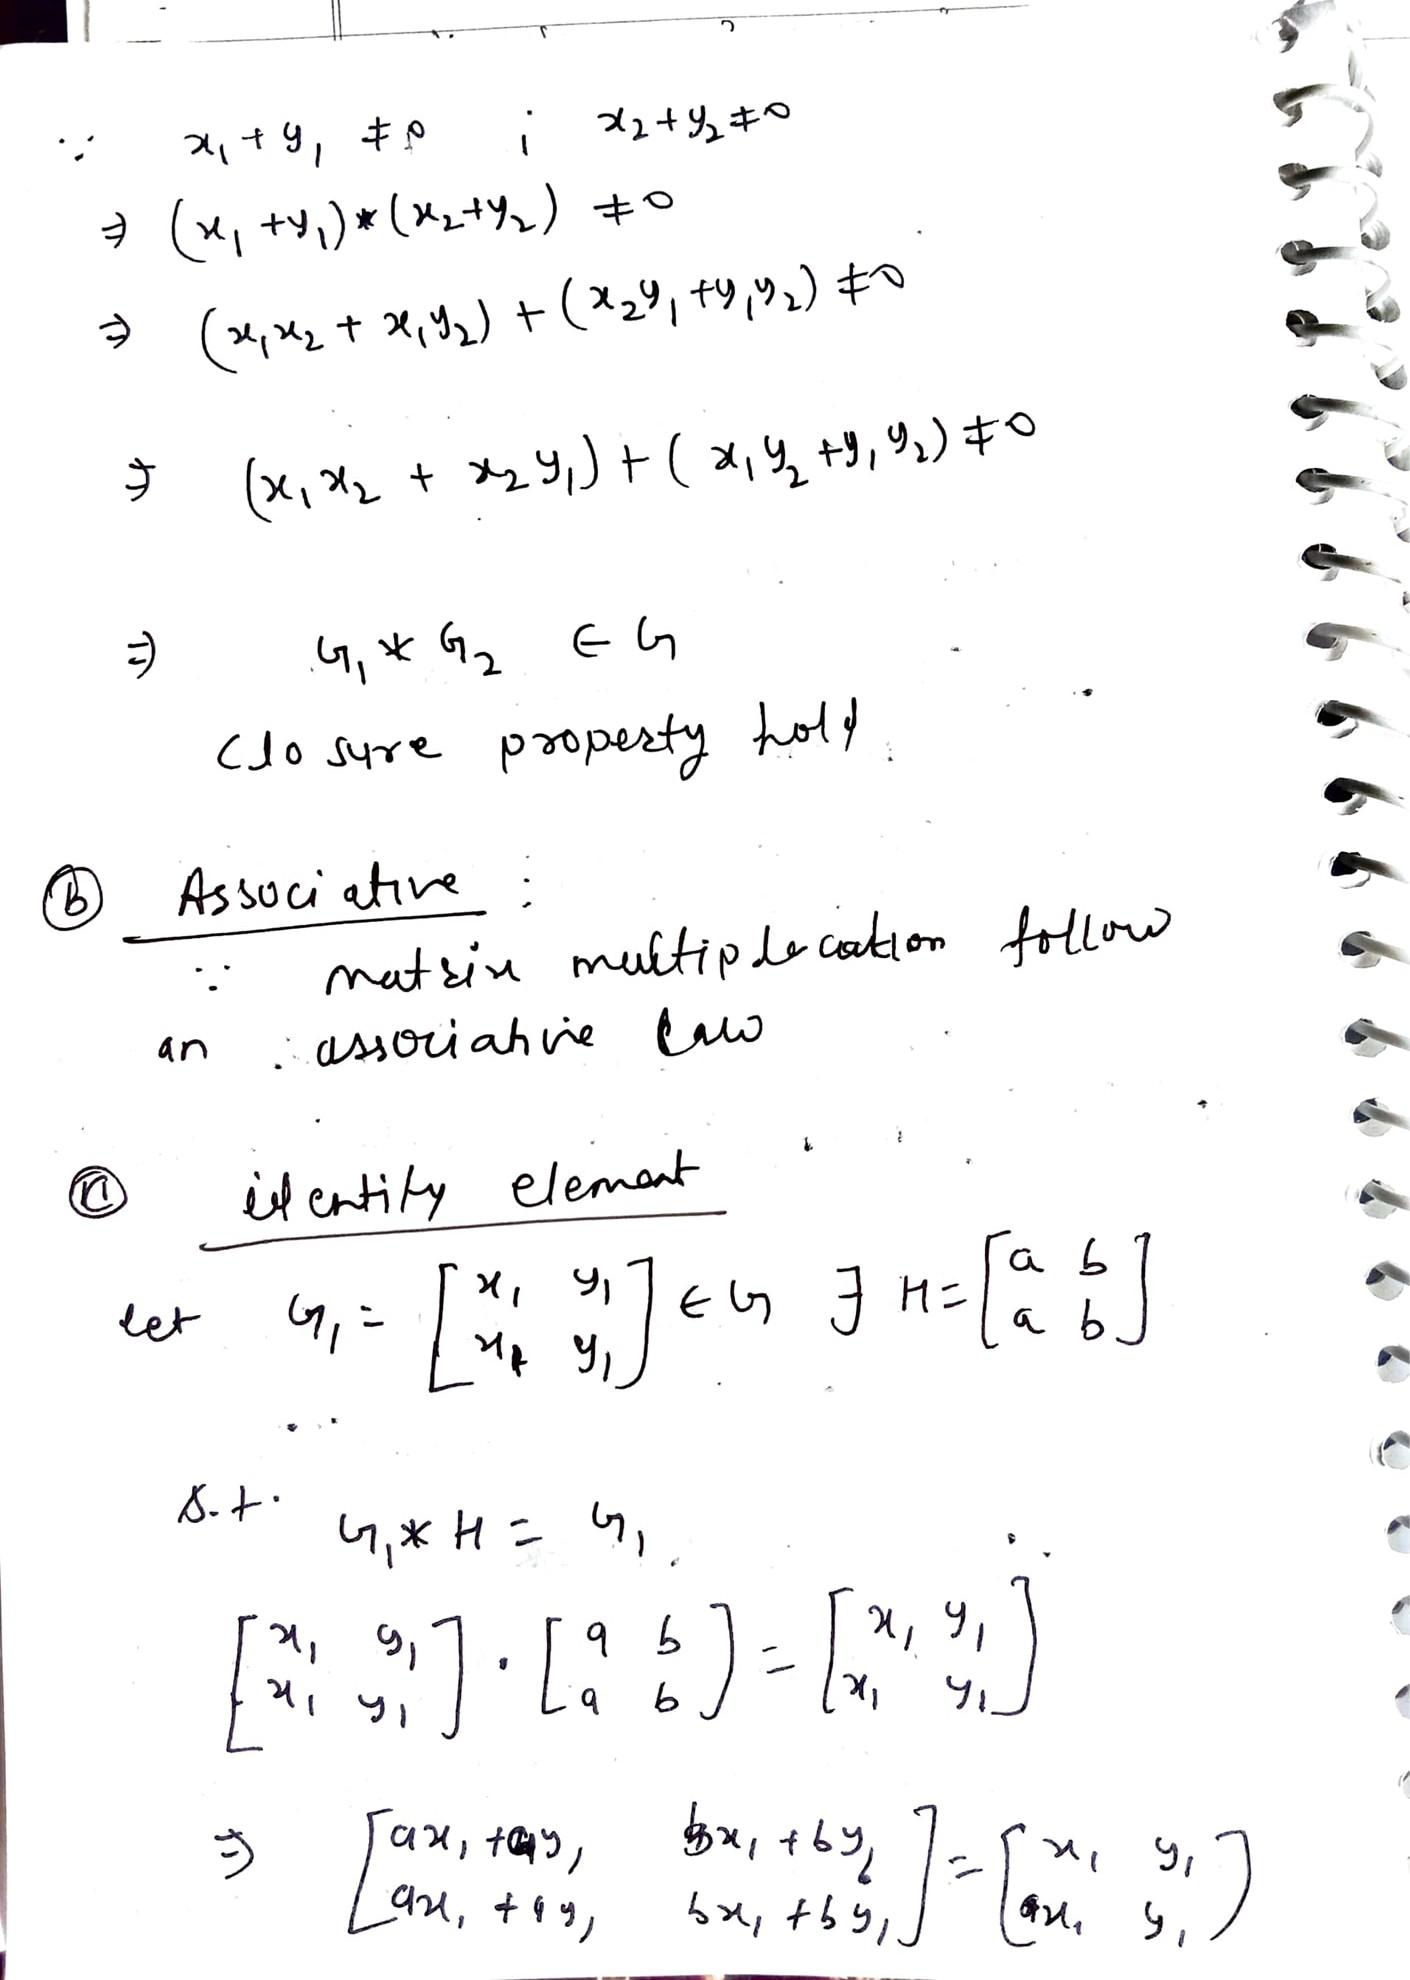 ∵ x₁ + y₁ ≠ 0 ; x₂ + y₂ ≠ 0
⇒ (x₁ + y₁) * (x₂ + y₂) ≠ 0
⇒ (x₁x₂ + x₁y₂) + (x₂y₁ + y₁y₂) ≠ 0
⇒ (x₁x₂ + x₂y₁) + (x₁y₂ + y₁y₂) ≠ 0
⇒ G₁ * G₂ ∈ G
Closure property hold.
(b) Associative :
∵ matrix multiplication follow
an associative law
(c) identity element
let G₁ = [x₁ y₁; x₁ y₁] ∈ G ∃ H = [a b; a b]
s.t. G₁ * H = G₁
[x₁ y₁; x₁ y₁] · [a b; a b] = [x₁ y₁; x₁ y₁]
⇒ [ax₁ + ay₁ bx₁ + by₁; ax₁ + ay₁ bx₁ + by₁] = [x₁ y₁; x₁ y₁]